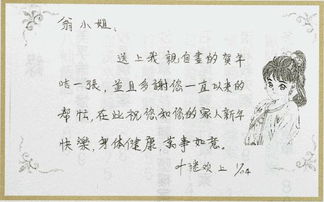 翁小姐,
送上我親自畫的賀年
咭一張,並且多謝您一直以來的
幫忙,在此祝您和您的家人新年
快樂,身体健康,萬事如意。
上 1/04